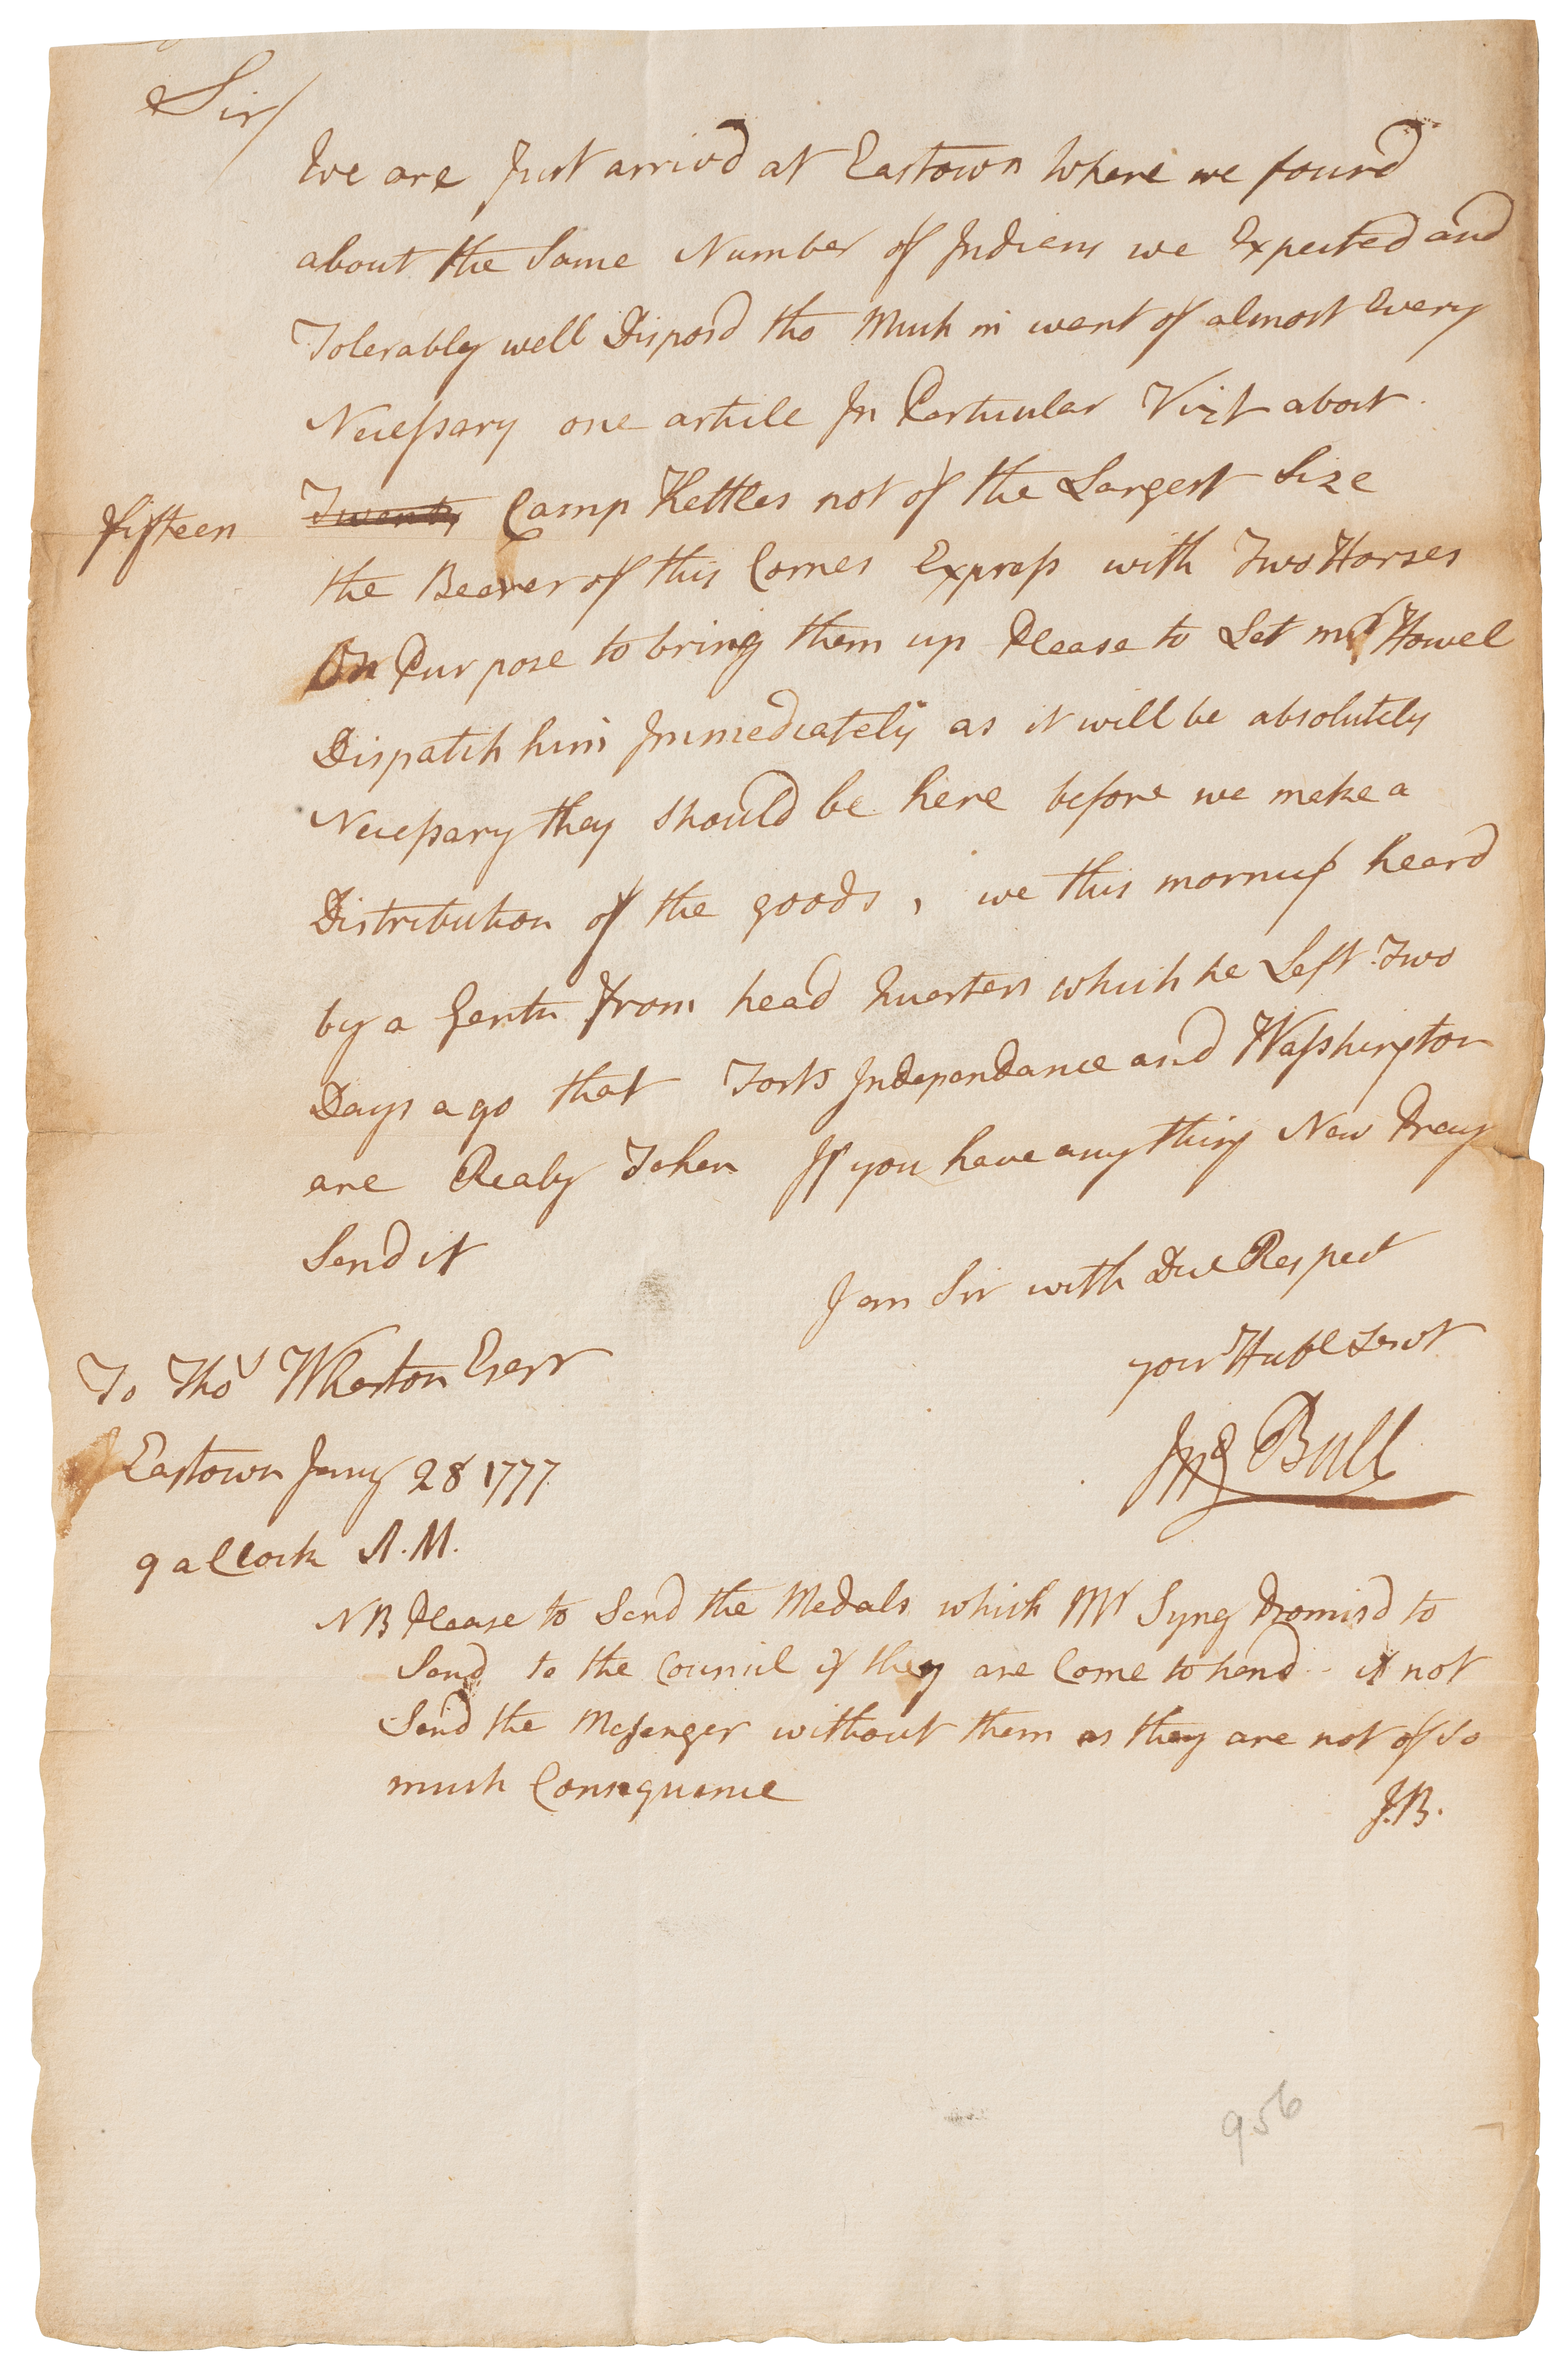 Sir/
We are Just arrivd at Eastown Where we found
about the Same Number of Indians we Expected and
Tolerably well Disposd tho Much in want of almost Every
Necessary one article In Particular Vizt about
fifteen Twenty Camp Kettles not of the Largest Size
the Bearer of this Comes Express with Two Horses
On Purpose to bring them up Please to Let mr Howel
Dispatch him Immediately as it will be absolutely
Necessary they Should be here before we make a
Distribution of the goods, we this morning heard
by a Gentn from head Quarters which he Left Two
Days ago that Forts Independance and Washington
are Realy Taken If you have any thing New Pray
Send it
I am Sir with Due Respect
your Huble Servt
Jno Bull
To Thos Wharton Esqr
Eastown Jany 28 1777
9 aClock A.M.
NB Please to Send the Medals which Mr Syng Promisd to
Send to the Council if they are Come to hand - if not
Send the Messenger without them as they are not of so
much Consequence
J.B.
956